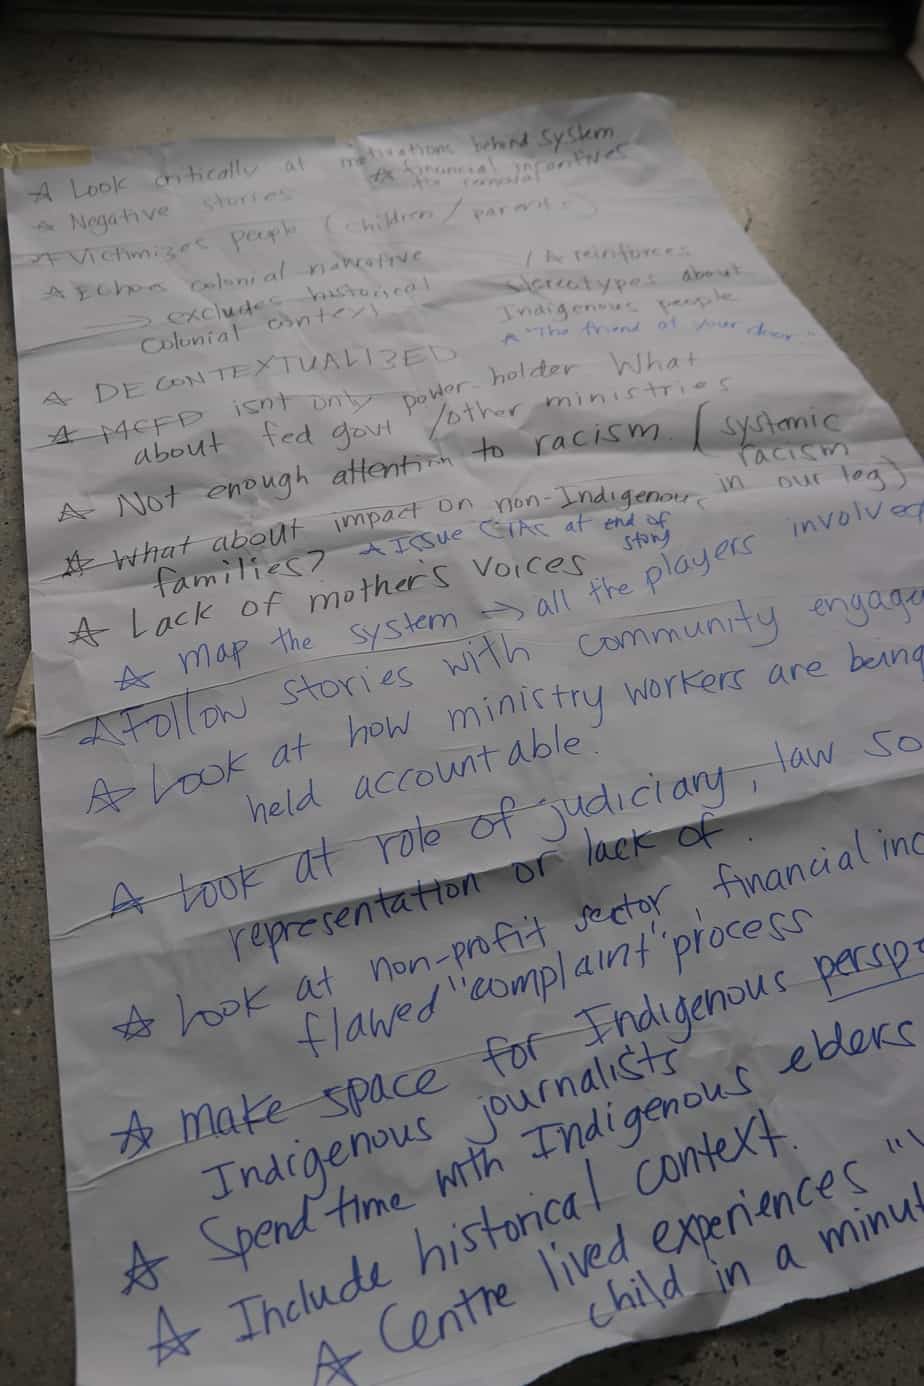 ☆ Look critically at motivations behind system
☆ financial incentives
to removal
☆ Negative stories
☆ Victimizes people (children / parents)
☆ Echoes colonial narrative
→ excludes historical
colonial context
/ ☆ reinforces
stereotypes about
Indigenous people
☆ "The friend at your door"
☆ DECONTEXTUALIZED
☆ MCFD isnt only power holder What
about fed govt /other ministries
☆ Not enough attention to racism. (systemic
racism
in our leg)
☆ What about impact on non-Indigenous
families?
☆ Issue at end of
story
☆ Lack of mother's voices
☆ map the system → all the players involved
☆ Follow stories with community engage
☆ Look at how ministry workers are being
held accountable.
☆ Look at role of judiciary, law so
representation or lack of.
☆ Look at non-profit sector, financial inc
flawed "complaint" process
☆ make space for Indigenous persp
Indigenous journalists
☆ Spend time with Indigenous elders
☆ Include historical context.
☆ Centre lived experiences "
child in a minut